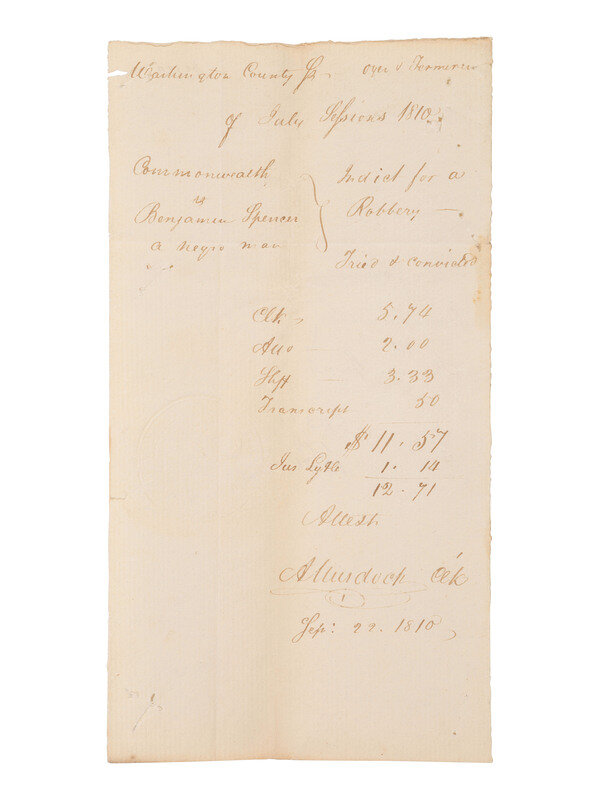 Washington County Ss. Oyer & Terminer
of July Sessions 1810
Commonwealth
vs
Benjamin Spencer
a negro man
Indict for a
Robbery
Tried & convicted
Clk 5.74
Atto 2.00
Shff 3.33
Transcript 50
$11.57
Jus Lytle 1.14
12.71
Attest
A Murdoch Clk
Sep: 22. 1810